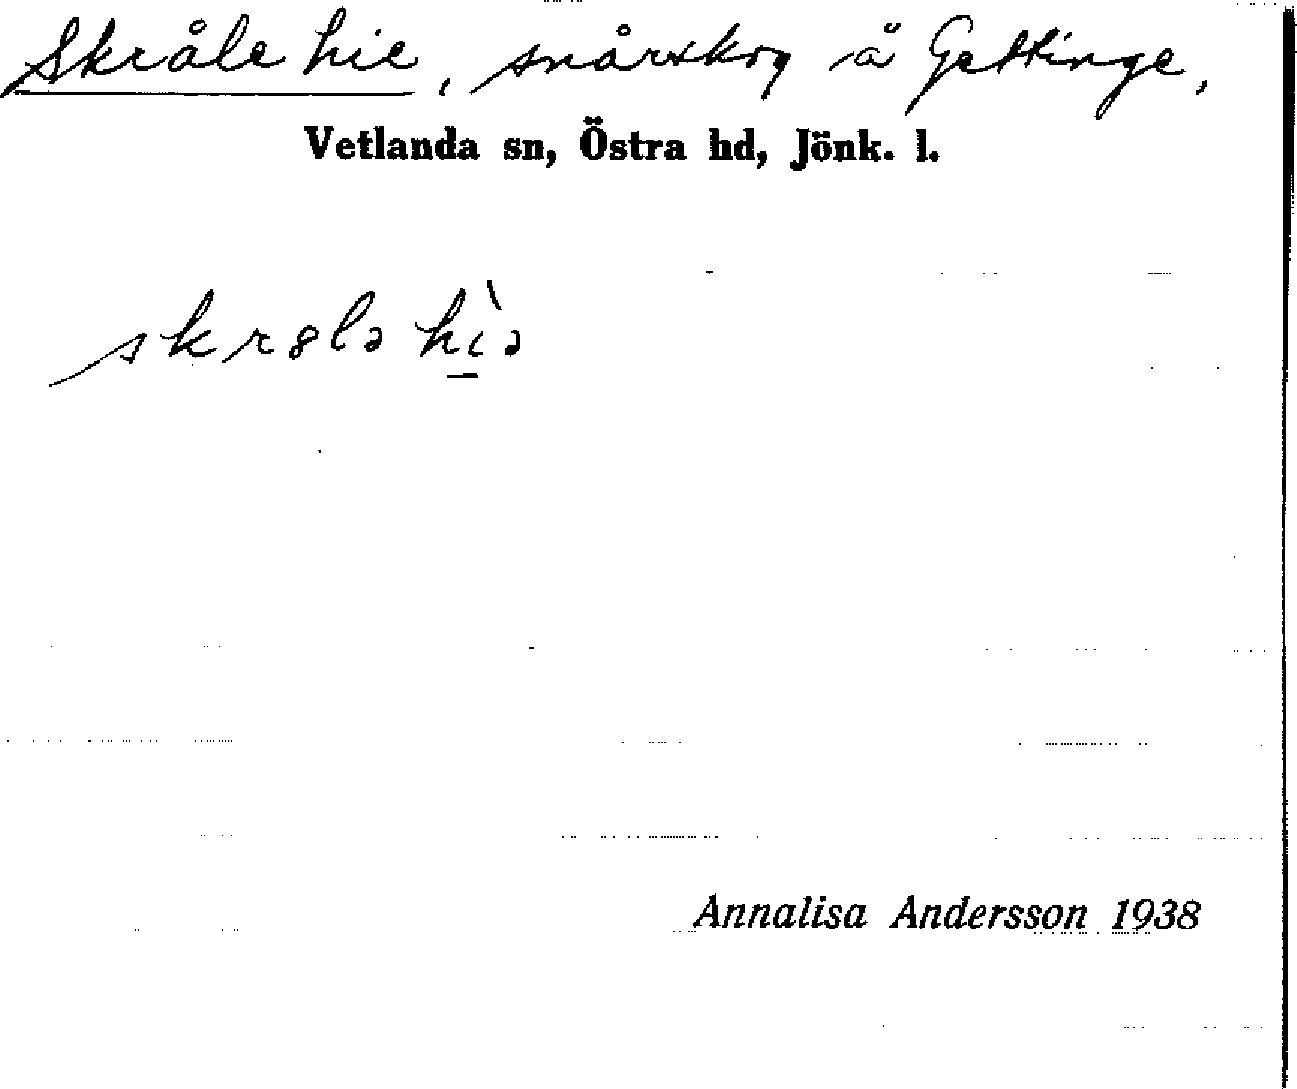 Skråle hie, snårskog å Gettinge,
Vetlanda sn, Östra hd, Jönk. l.
skrɞlə hìə
Annalisa Andersson 1938